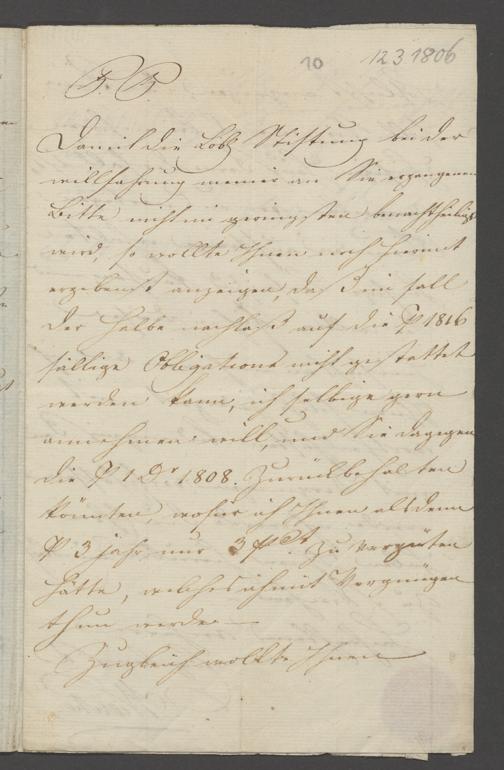 10 12 3 1806
P. P.
Damit die Lobl Stiftung bei der
willfahrung meiner an Sie ergangenen
Bitte nicht im geringsten benachtheiligt
wird, so wollte Ihnen noch hiermit
ergebenst anzeigen, daß im fall
der halbe nachlaß auf die P 1816
fällige Obligations nicht gestattet
werden kann, ich selbige gern
annehmen will, und Sie dagegen
die P 1 Dr 1808. Zurückbehalten
könnten, wofür ich Ihnen alsdenn
P 3 jahr nur 3 pCt. zu vergüten
hätte, welches ich mit Vergnügen
thun werde —
Zugleich wollte Ihnen